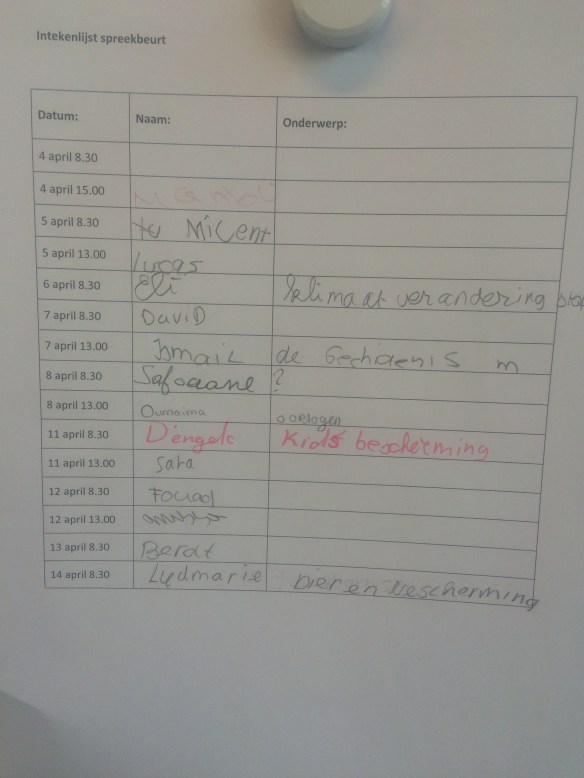 Intekenlijst spreekbeurt
Datum: Naam: Onderwerp:
4 april 8.30
4 april 15.00
5 april 8.30 Micent
5 april 13.00 lucas
6 april 8.30 Eli klimaat verandering
7 april 8.30 DaviD
7 april 13.00 Ismail de Gechiaenis m
8 april 8.30 Safouane ?
8 april 13.00 Oumaima oorlogen
11 april 8.30 D'engelo Kids bescherming
11 april 13.00 Sara
12 april 8.30 Fouad
12 april 13.00
13 april 8.30 Berat
14 april 8.30 Lydmarie Dieren bescherming